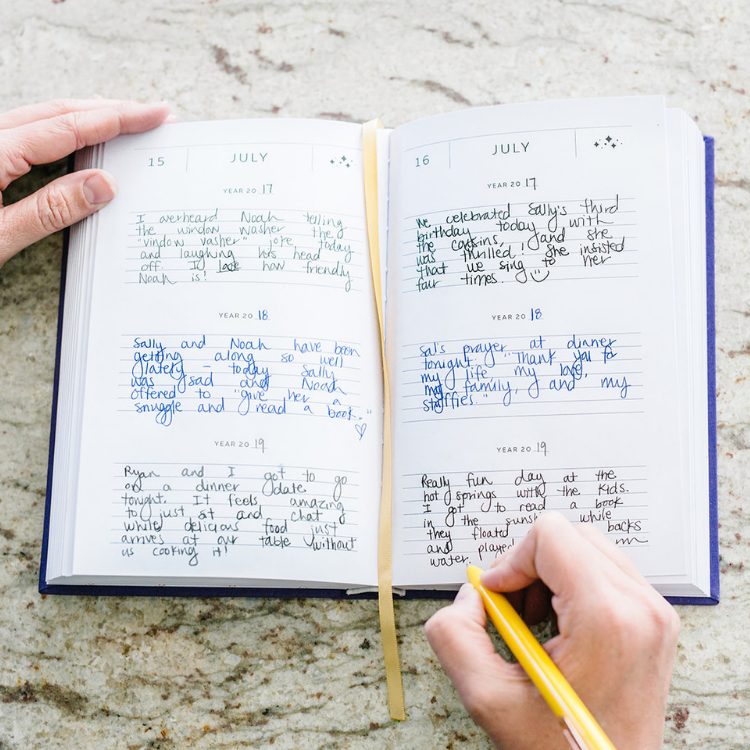 15 JULY
YEAR 20 17
I overheard Noah telling
the window washer the
"vindow vasher" joke today
and laughing his head
off. I love how friendly
Noah is!
YEAR 20 18
Sally and Noah have been
getting along so well
lately – today Sally
was sad and Noah
offered to "give her a
snuggle and read a book."
YEAR 20 19
Ryan and I got to go
on a dinner date
tonight. It feels amazing
to just sit and chat
while delicious food just
arrives at our table without
us cooking it!
16 JULY
YEAR 20 17
We celebrated Sally's third
birthday today with
the cousins, and she
was thrilled! She insisted
that we sing to her
four times.
YEAR 20 18
Sal's prayer at dinner
tonight: "Thank you for
my life, my love,
my family, and my
stuffies."
YEAR 20 19
Really fun day at the
hot springs with the kids.
I got to read a book
in the sunshine while
they floated backs
and
water, played